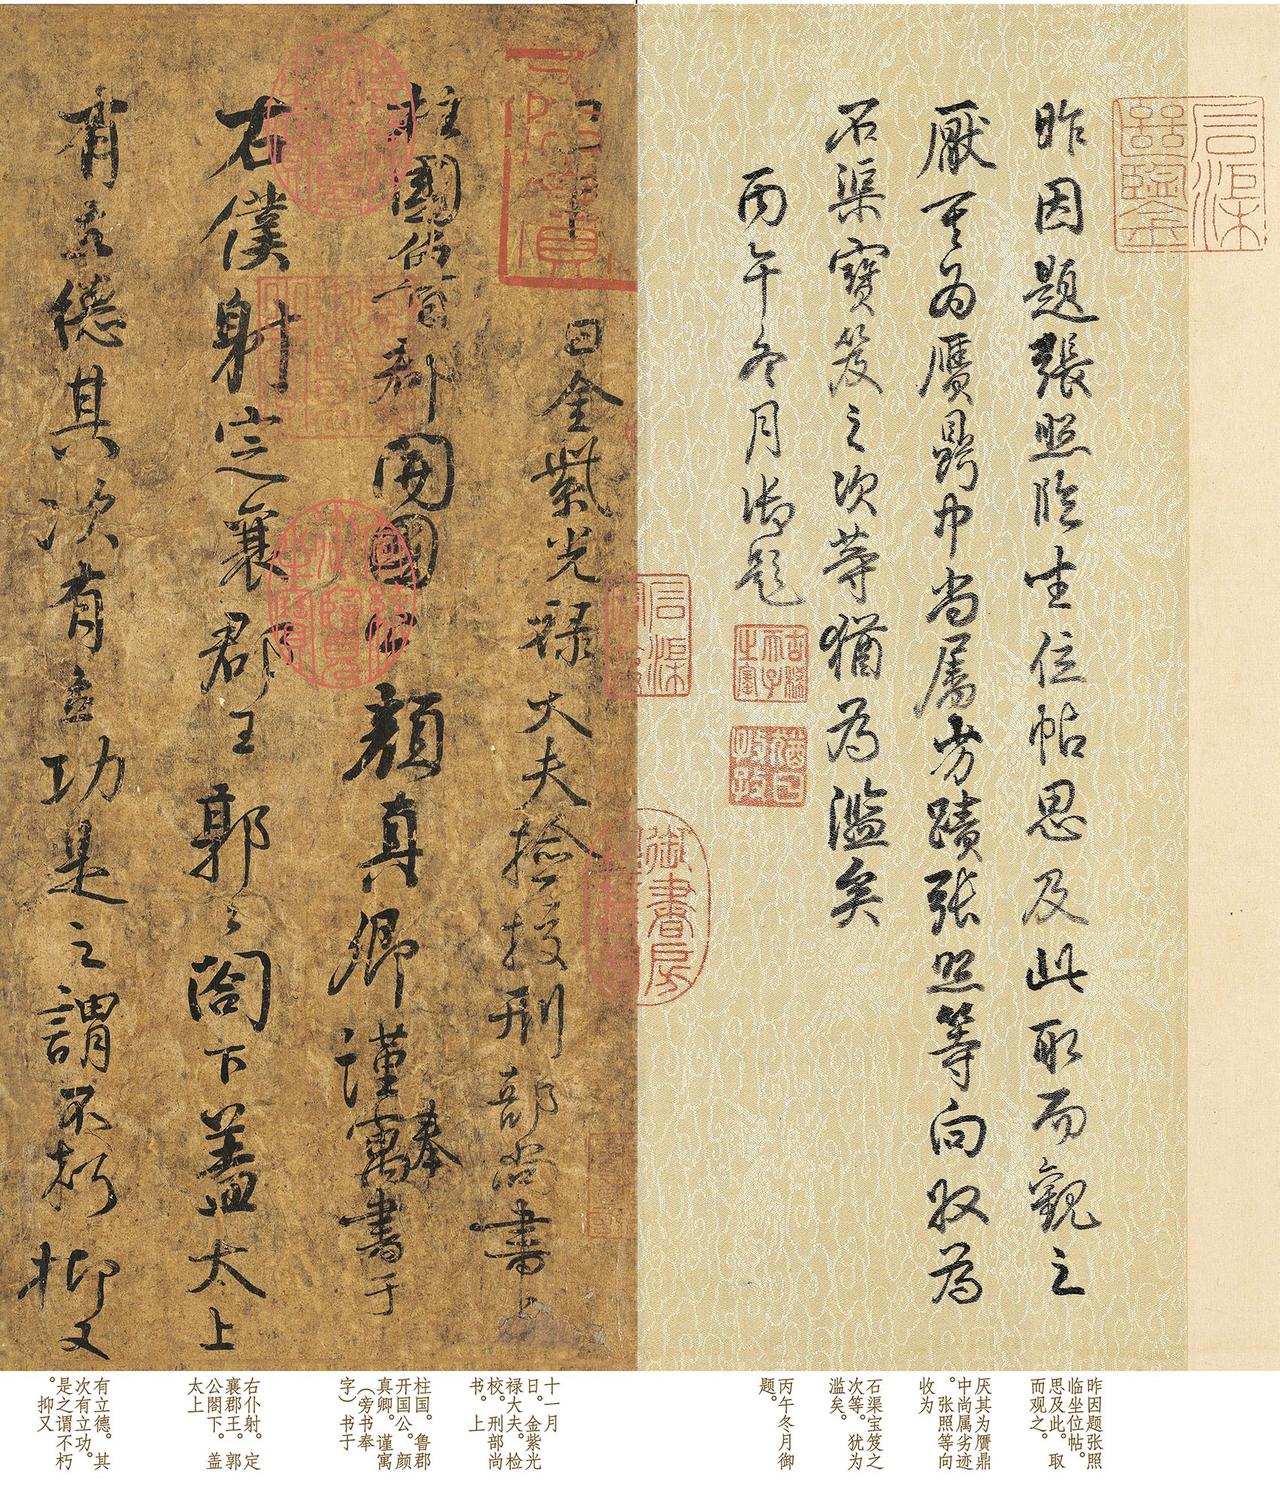 昨因題張照臨坐位帖思及此取而觀之
厭其為贋鼎中尚屬劣蹟張照等向收為
石渠寶笈之次等猶為濫矣
丙午冬月御題
御書房
日金紫光祿大夫檢挍刑部尚書上
柱國魯郡開國公顏真卿謹寓書于
奉
右僕射定襄郡王郭公閤下蓋太上
有立德其次有立功是之謂不朽抑又
昨因题张照
临坐位帖。
思及此。取
而观之。
厌其为贋鼎
中尚属劣迹
。张照等向
收为
石渠宝笈之
次等。犹为
滥矣。
丙午冬月御
题。
十一月
日。金紫光
禄大夫。检
校。刑部尚
书。上
柱国。鲁郡
开国公。颜
真卿。谨寓
（旁书奉
字）书于
右仆射。定
襄郡王。郭
公閤下。盖
太上
有立德。其
次有立功。
是之谓不朽
。抑又